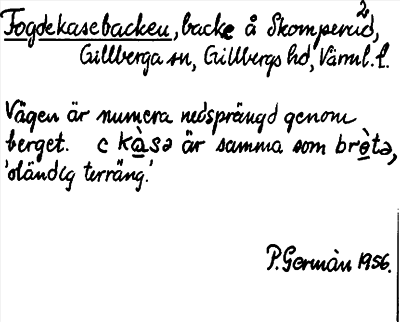 Fogdekasebacken, backe å Skomperud,
Gillberga sn, Gillbergs hd, Värml. l.
Vägen är numera nedsprängd genom
berget. c kàsə är samma som brètə,
'oländig terräng.'
P. Germàn 1956.